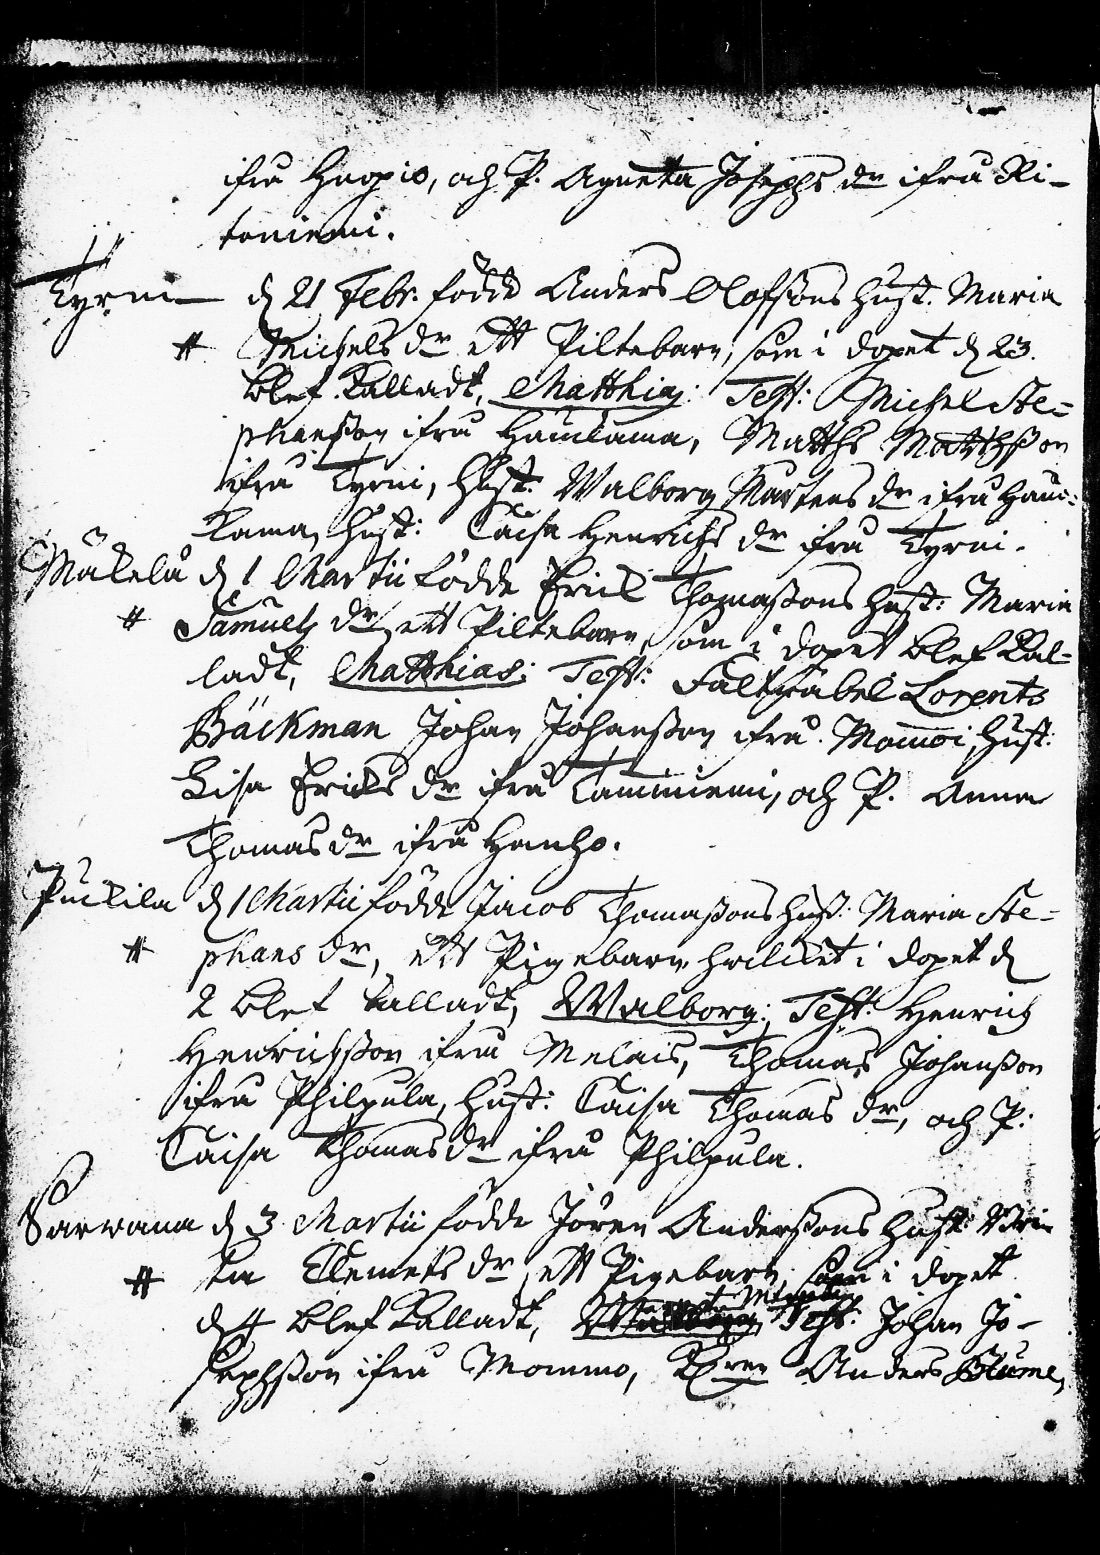 ifrå Haapio, och P. Agneta Josephs dr ifrå Ri-
toniemi.
Tyrni d 21 Febr. födde Anders Olofssons Hust. Maria
# Michels dr ett Piltebarn, som i dopet d 23.
blef kalladt, Matthias: Test: Michel Ste-
phansson ifrå Hauckama, Matths Matthsson
ifrå Tyrni, Hust: Walborg Mårtens dr ifrå Hauc-
kama, Hust: Caisa Henrichs dr ifrå Tyrni.
Mäkelä d 1 Martii födde Erich Thomassons Hust: Maria
# Samuels dr, ett Piltebarn, som i dopet blef kal-
ladt, Matthias: Test: Lorents
Bäckman Johan Johansson ifrå Hust:
Lisa Erichs dr ifrå Tamminiemi, och P. Anna
Thomas dr ifrå Hanho.
Puckila d 1 Martii födde Jacob Thomassons Hust: Maria Ste-
# phans dr, ett Pigebarn, hvilket i dopet d
2 blef kalladt, Walborg: Test: Henrich
Henrichsson ifrå Melais, Thomas Johansson
ifrå Philpula, Hust: Caisa Thomas dr, och P.
Caisa Thomas dr ifrå Philpula.
Sarwana d 3 Martii födde Jören Anderssons Hust: Bri-
# ta Clemets dr, ett Pigebarn, som i dopet
d 4 blef kalladt, Test: Johan Jo-
sephsson ifrå Mommo, Anders Blume,